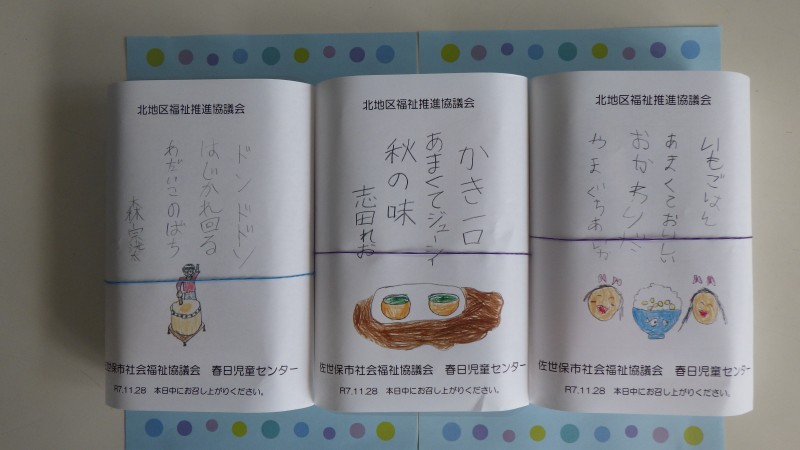 北地区福祉推進協議会
ドンドドン
はじかれ回る
わだいこのばち
森
世保市社会福祉協議会　春日児童センター
R7.11.28　本日中にお召し上がりください。
北地区福祉推進協議会
かき一口
あまくてジューシィ
秋の味
志田れお
佐世保市社会福祉協議会　春日児童センター
R7.11.28　本日中にお召し上がりください。
北地区福祉推進協議会
いもごはん
あまくておいしい
おかわりだ
やまぐち
佐世保市社会福祉協議会　春日児童センター
R7.11.28　本日中にお召し上がりください。